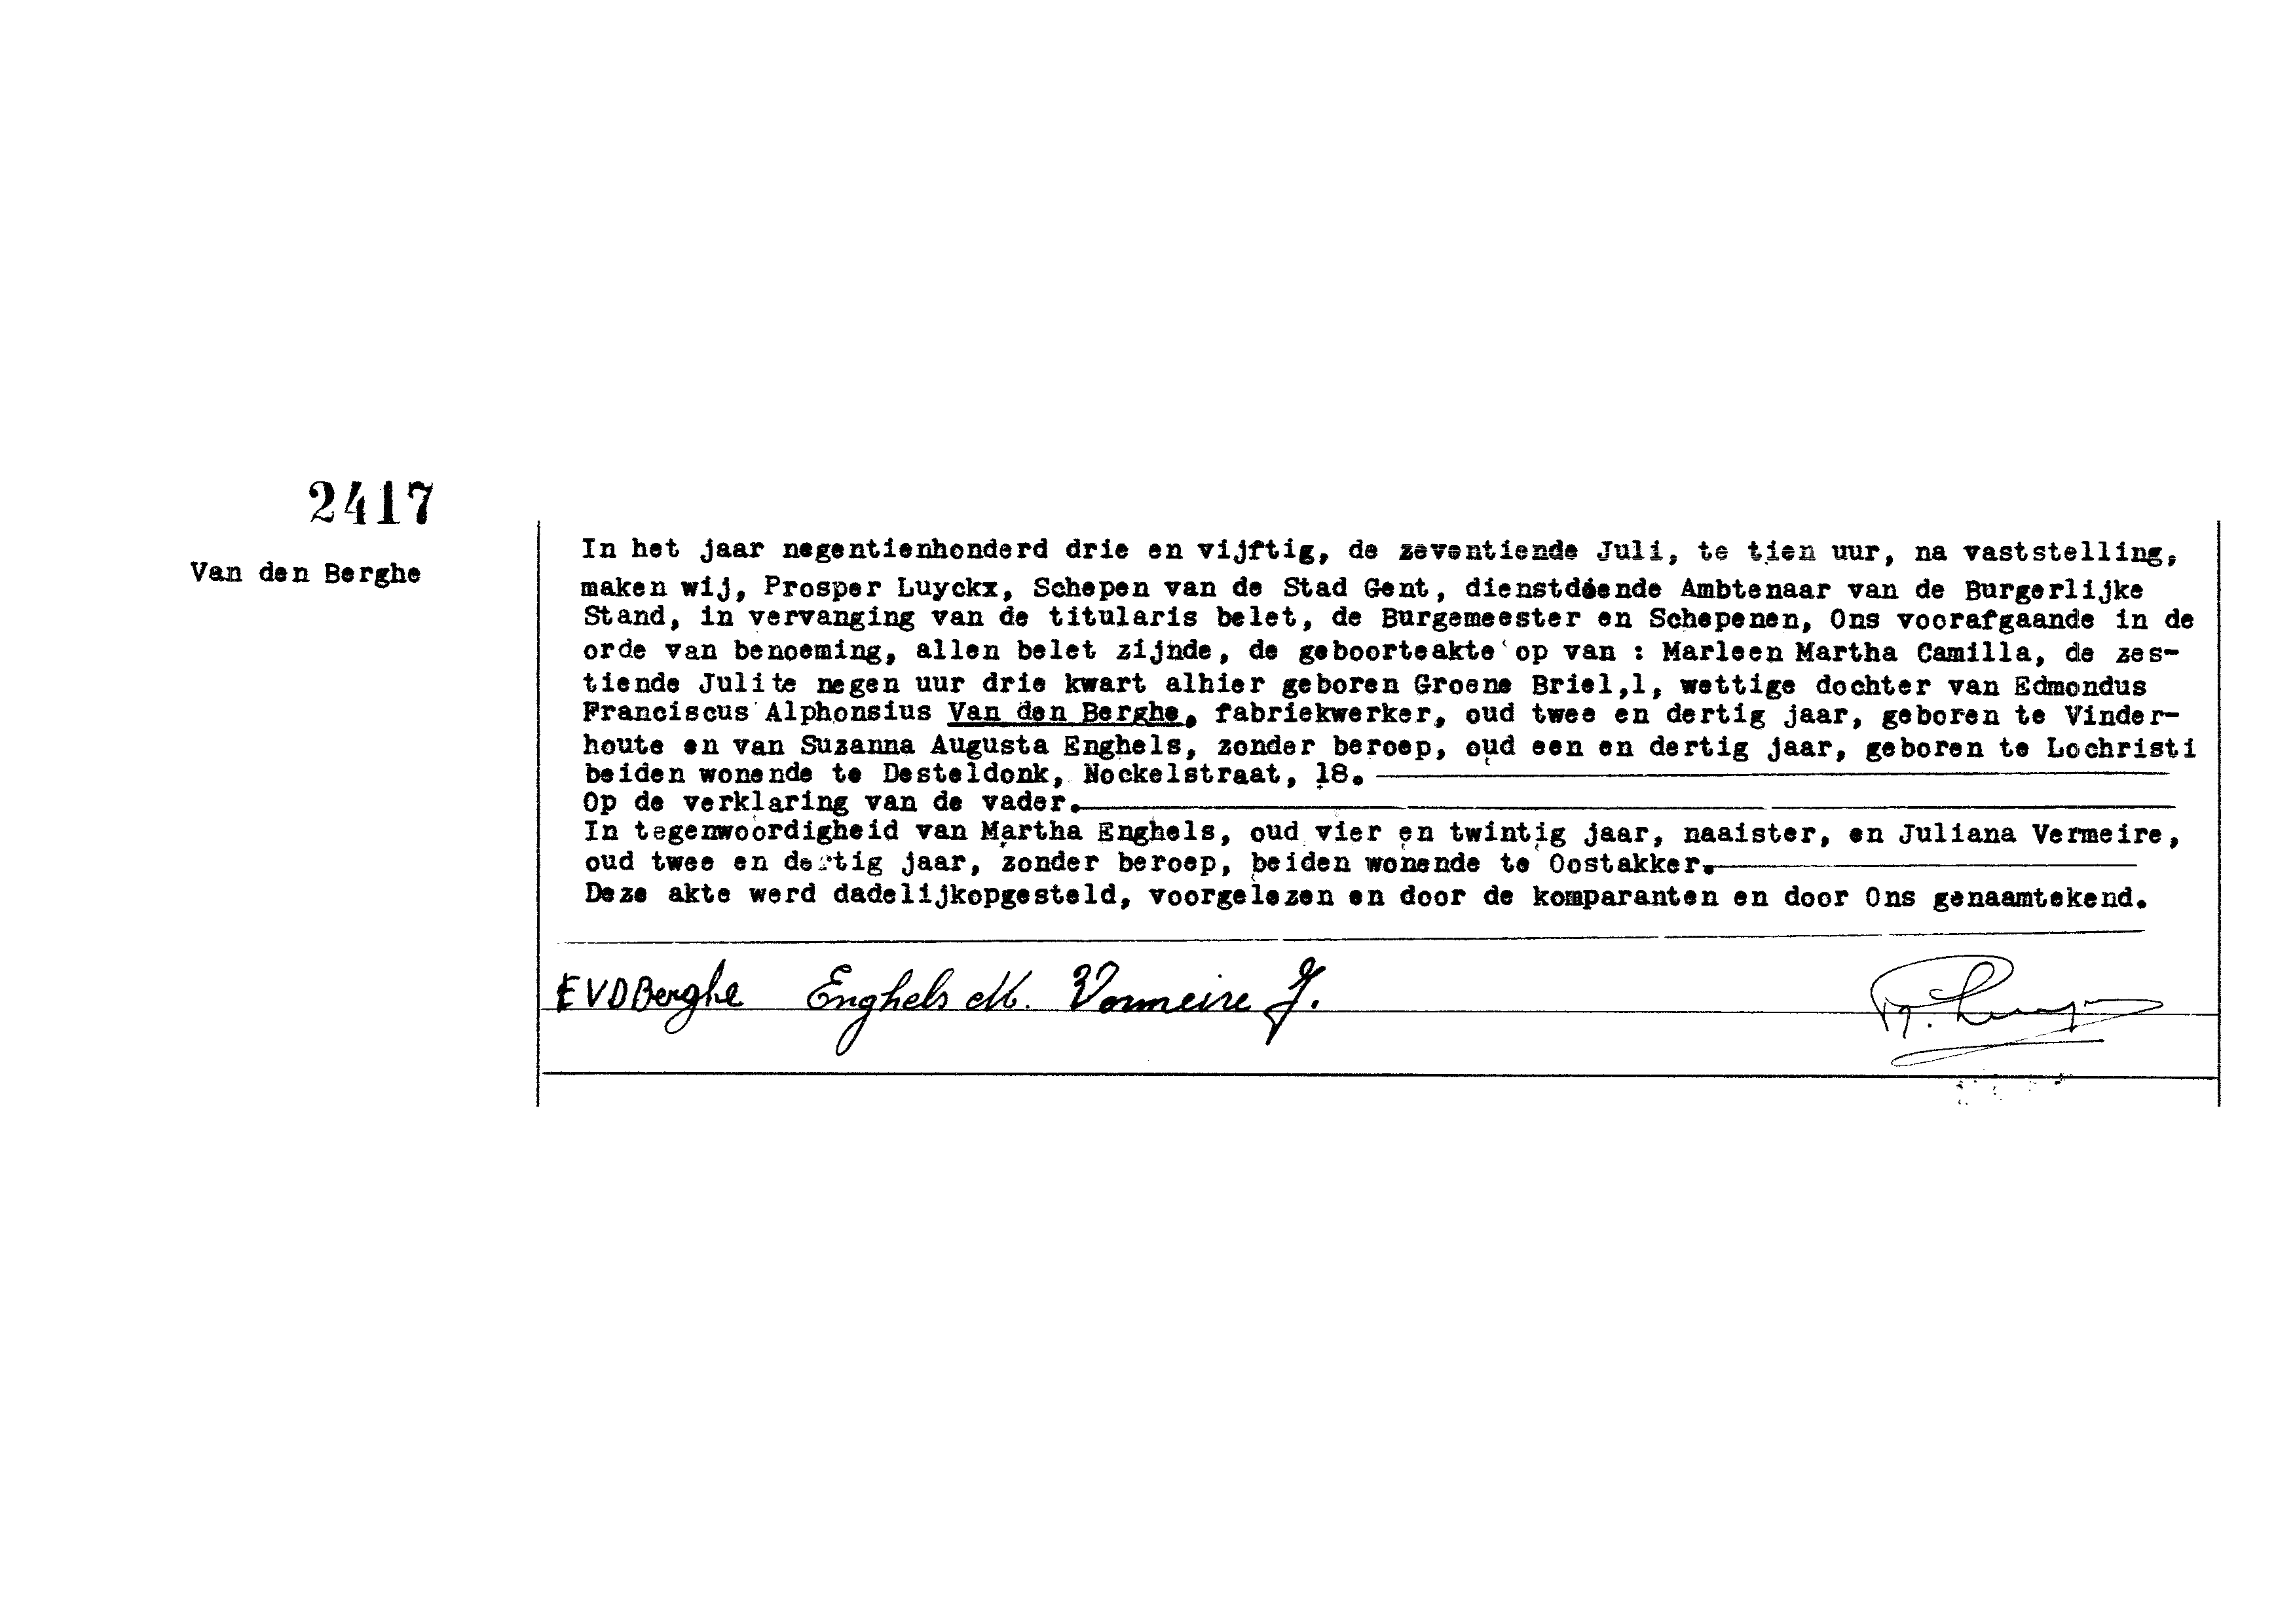 2417
Van den Berghe
In het jaar negentienhonderd drie en vijftig, de zeventiende Juli, te tien uur, na vaststelling,
maken wij, Prosper Luyckx, Schepen van de Stad Gent, dienstdoende Ambtenaar van de Burgerlijke
Stand, in vervanging van de titularis belet, de Burgemeester en Schepenen, Ons voorafgaande in de
orde van benoeming, allen belet zijnde, de geboorteakte op van : Marleen Martha Camilla, de zes-
tiende Juli te negen uur drie kwart alhier geboren Groene Briel,1, wettige dochter van Edmondus
Franciscus Alphonsius Van den Berghe, fabriekwerker, oud twee en dertig jaar, geboren te Vinder-
houte en van Suzanna Augusta Enghels, zonder beroep, oud een en dertig jaar, geboren te Lochristi
beiden wonende te Desteldonk, Nockelstraat, 18.
Op de verklaring van de vader.
In tegenwoordigheid van Martha Enghels, oud vier en twintig jaar, naaister, en Juliana Vermeire,
oud twee en dertig jaar, zonder beroep, beiden wonende te Oostakker.
Deze akte werd dadelijkopgesteld, voorgelezen en door de komparanten en door Ons genaamtekend.
E VD Berghe Enghels M. Vermeire J.